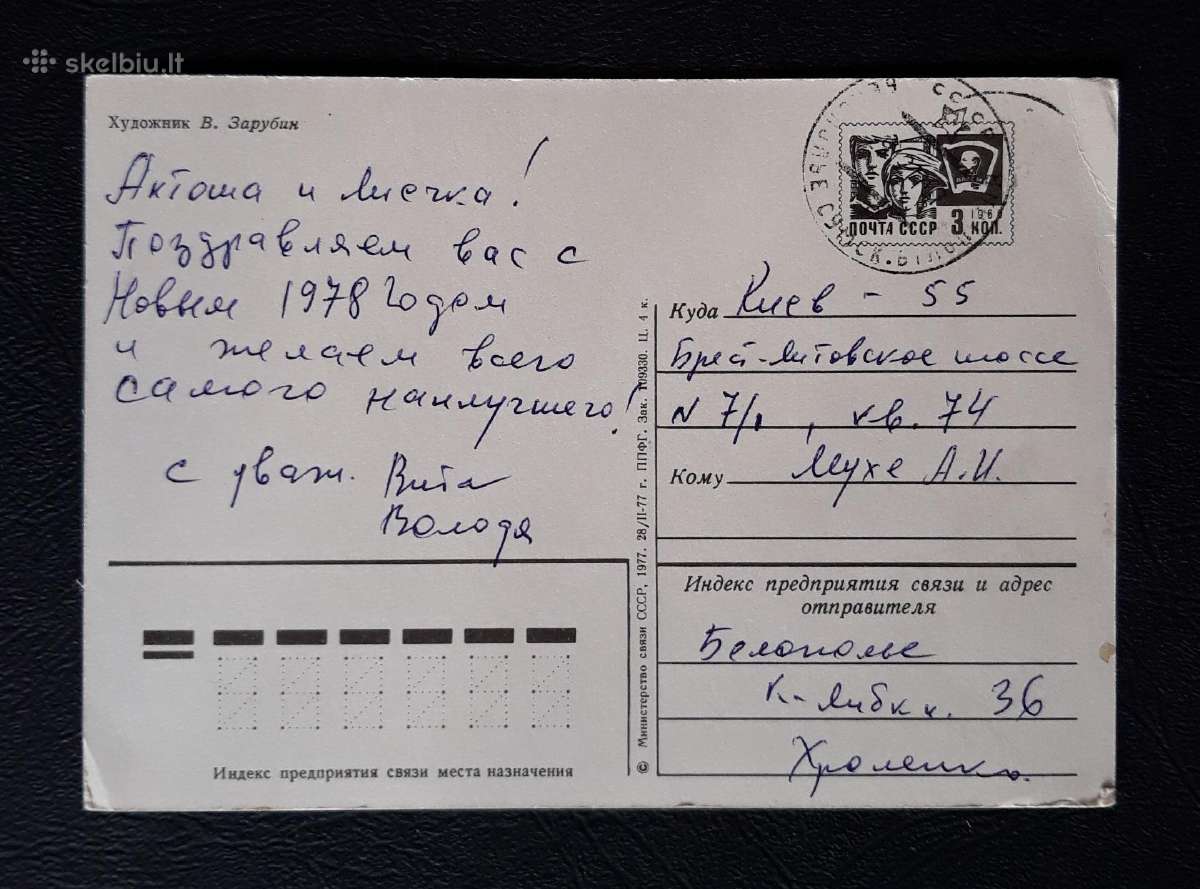 skelbiu.lt
Художник В. Зарубин
Антоша и Лисечка!
Поздравляем вас с
Новым 1978 Годом
и желаем всего
самого наилучшего!
с уваж. Вита
Володя
ПОЧТА СССР 3 КОП.
1966
Куда Киев - 55
Брест-Литовское шоссе
N 7/1, кв. 74
Кому Мухе А.И.
Индекс предприятия связи и адрес
отправителя
Белополье
К-Либкн. 36
Хроленко
© Министерство связи СССР, 1977. 28/II-77 г. ППФГ. Зак. 109330. Ц. 4 к.
Индекс предприятия связи места назначения